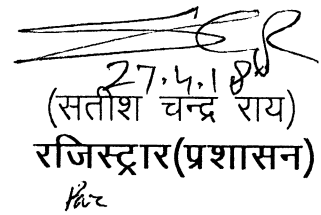 27.4.18
(सतीश चन्द्र राय)
रजिस्ट्रार(प्रशासन)